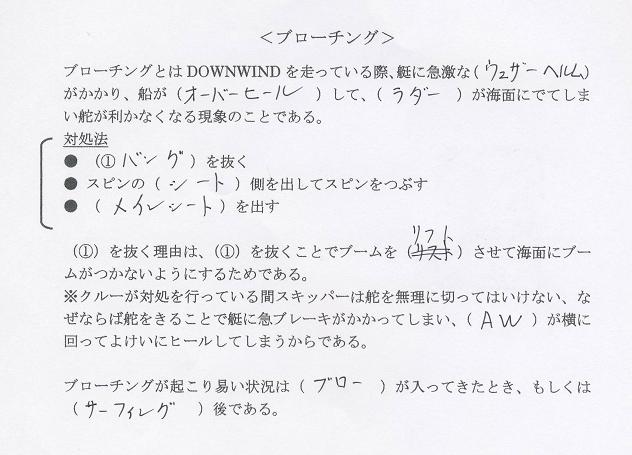 ＜ブローチング＞
ブローチングとは DOWNWIND を走っている際、艇に急激な（ウェザーヘルム）
がかかり、船が（オーバーヒール）して、（ラダー）が海面にでてしま
い舵が利かなくなる現象のことである。
対処法
● （①バング）を抜く
● スピンの（シート）側を出してスピンをつぶす
● （メインシート）を出す
リフト
（①）を抜く理由は、（①）を抜くことでブームを（）させて海面にブー
ムがつかないようにするためである。
※クルーが対処を行っている間スキッパーは舵を無理に切ってはいけない、な
ぜならば舵をきることで艇に急ブレーキがかかってしまい、（AW）が横に
回ってよけいにヒールしてしまうからである。
ブローチングが起こり易い状況は（ブロー）が入ってきたとき、もしくは
（サーフィング）後である。